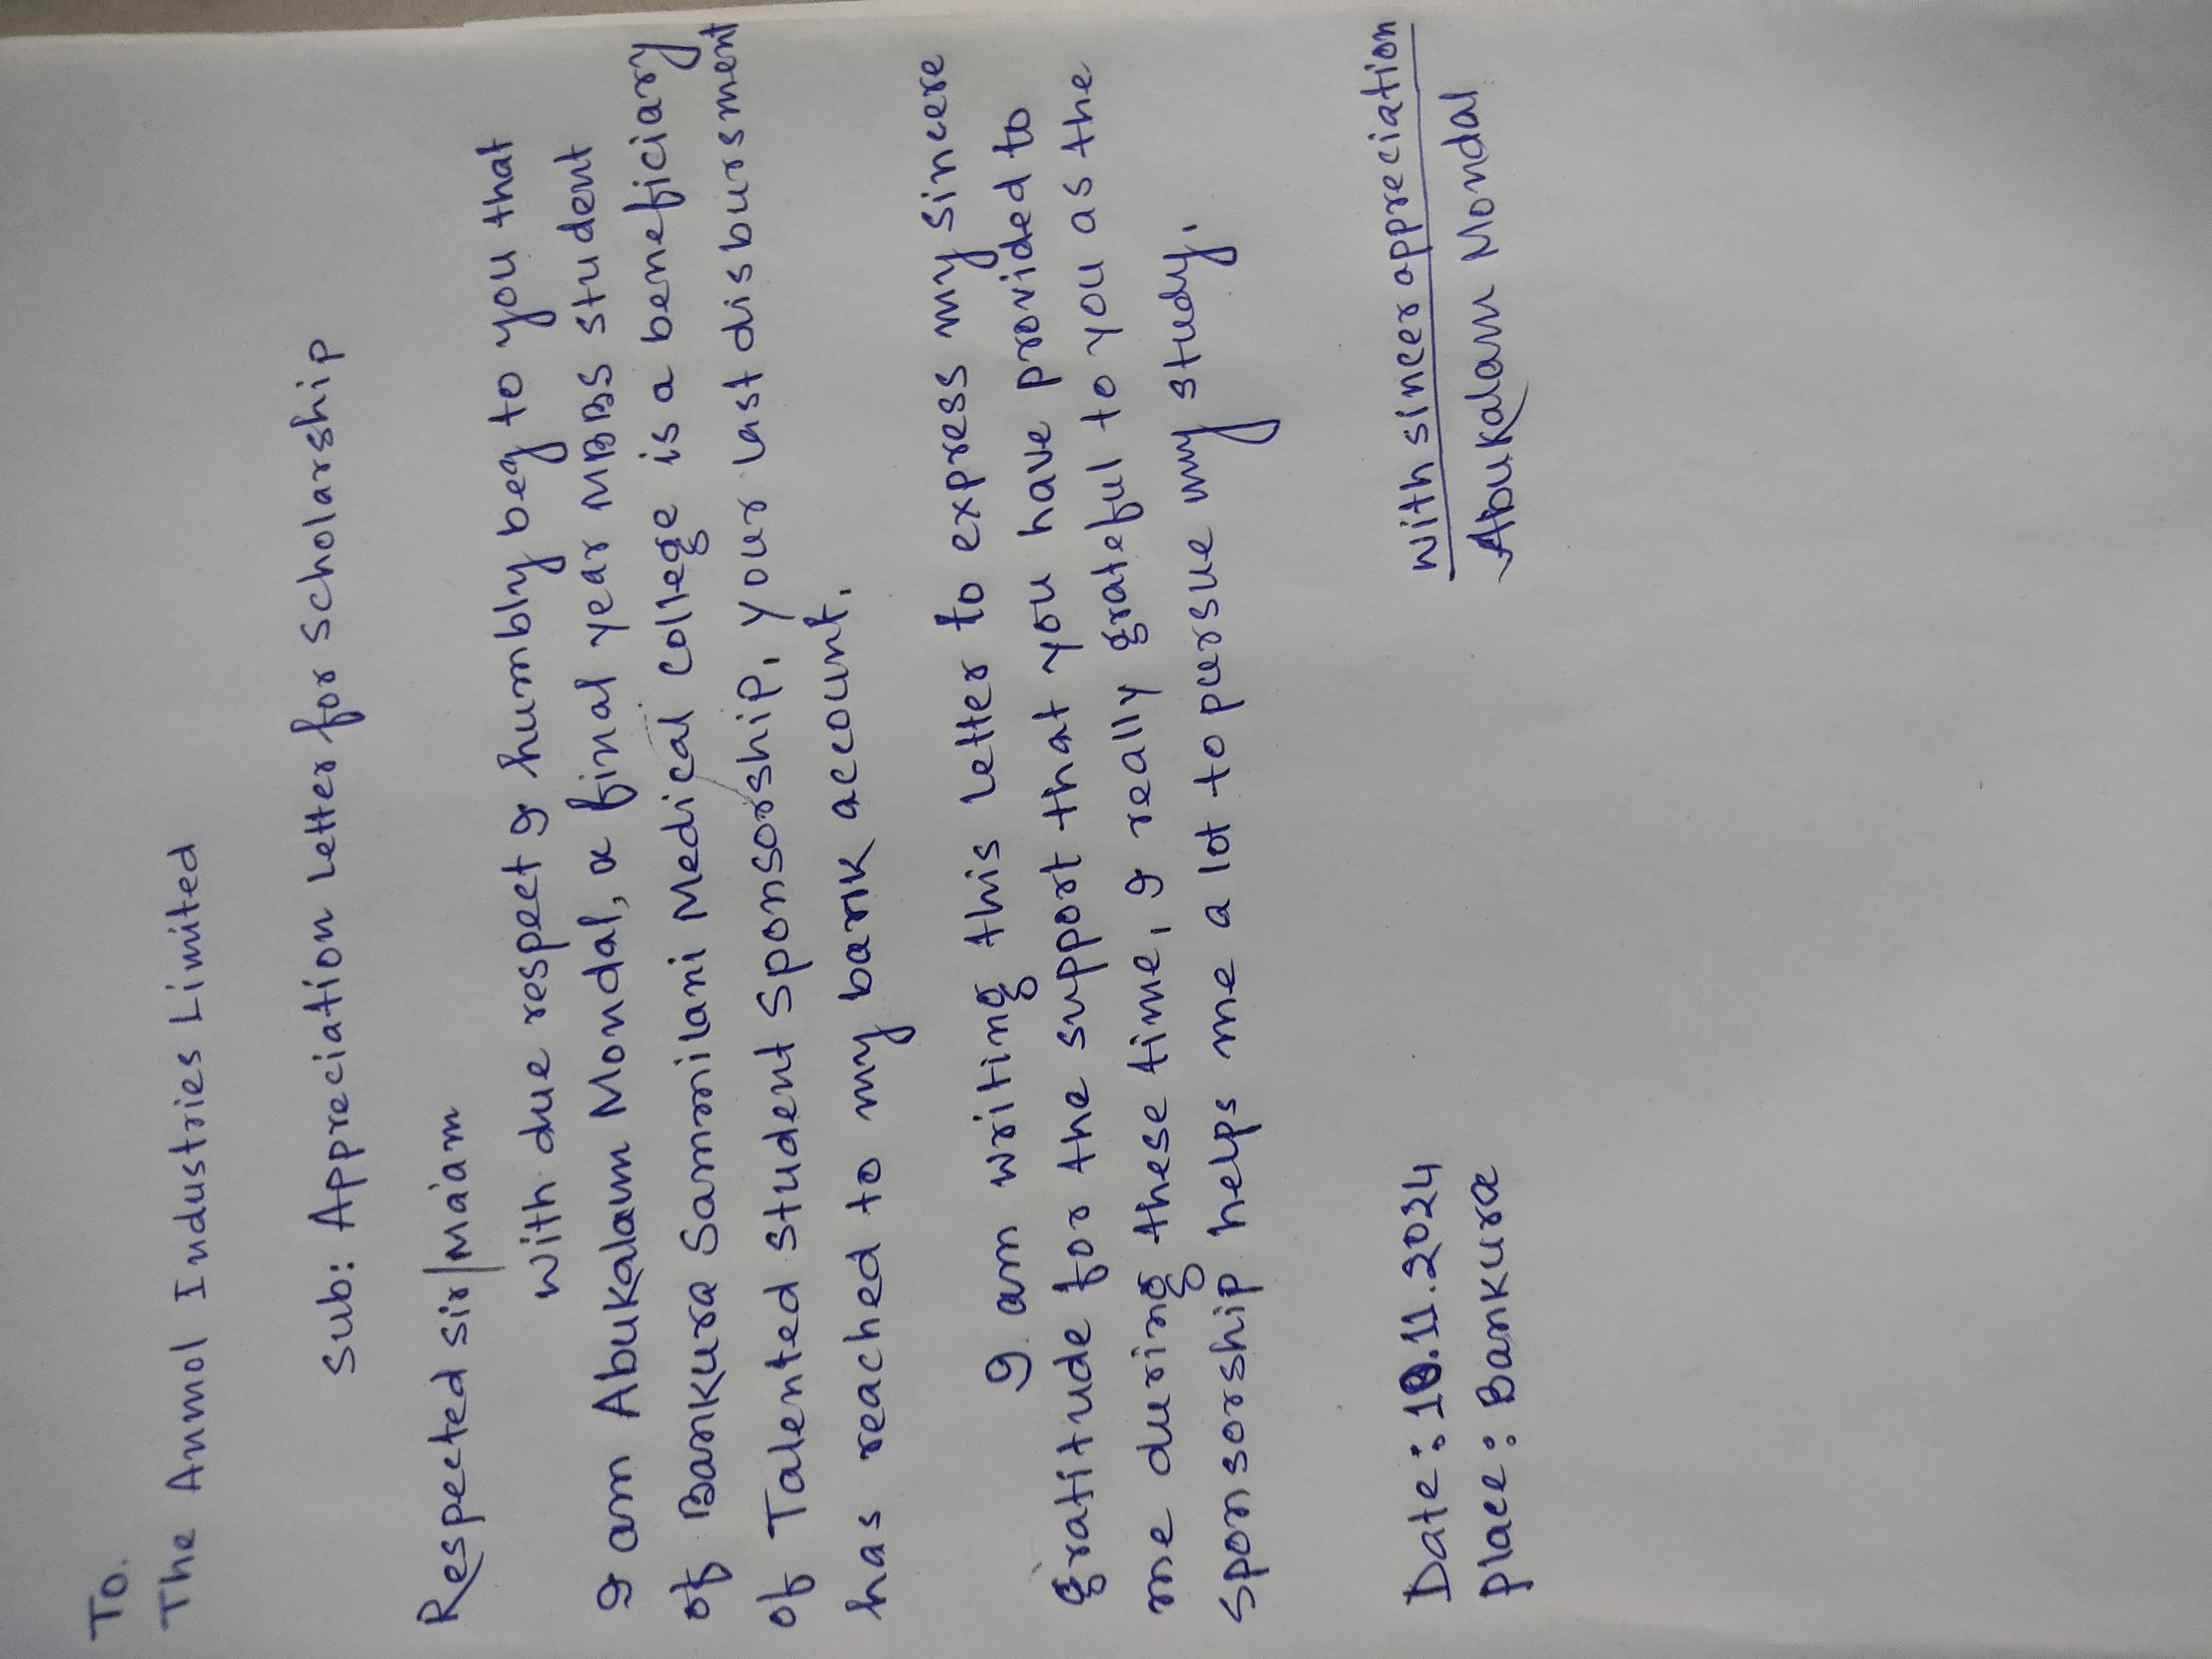 To.
The Anmol Industries Limited
Sub: Appreciation Letter for scholarship
Respected sir/Ma'am
with due respect I humbly beg to you that
I am Abukalam Mondal, a final year MBBS student
of Bankura Sammilani Medical college is a beneficiary
of Talented student sponsorship, your last disbursment
has reached to my bank account.
I am writing this letter to express my sincere
gratitude for the support that you have provided to
me during these time, I really grateful to you as the
sponsorship helps me a lot to pursue my study.
with sincer appreciation
Abukalam Mondal
Date: 10.11.2024
place: Bankura